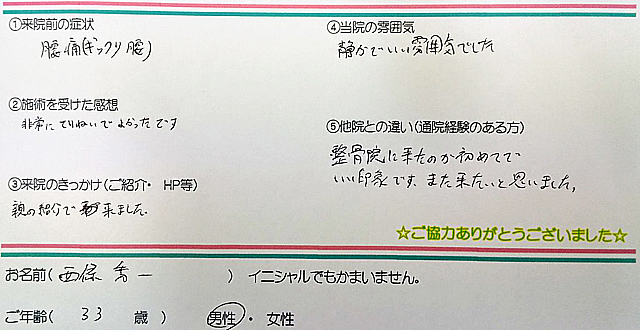 ①来院前の症状
腰痛(ギックリ腰)
②施術を受けた感想
非常にていねいでよかったです
③来院のきっかけ(ご紹介・ HP等)
親の紹介で来ました。
④当院の雰囲気
静かでいい雰囲気でした
⑤他院との違い(通院経験のある方)
整骨院に来たのが初めてで
いい印象です。また来たいと思いました。
☆ご協力ありがとうございました☆
お名前( 西 一 ) イニシャルでもかまいません。
ご年齢( 33 歳 ) 男性 ・ 女性